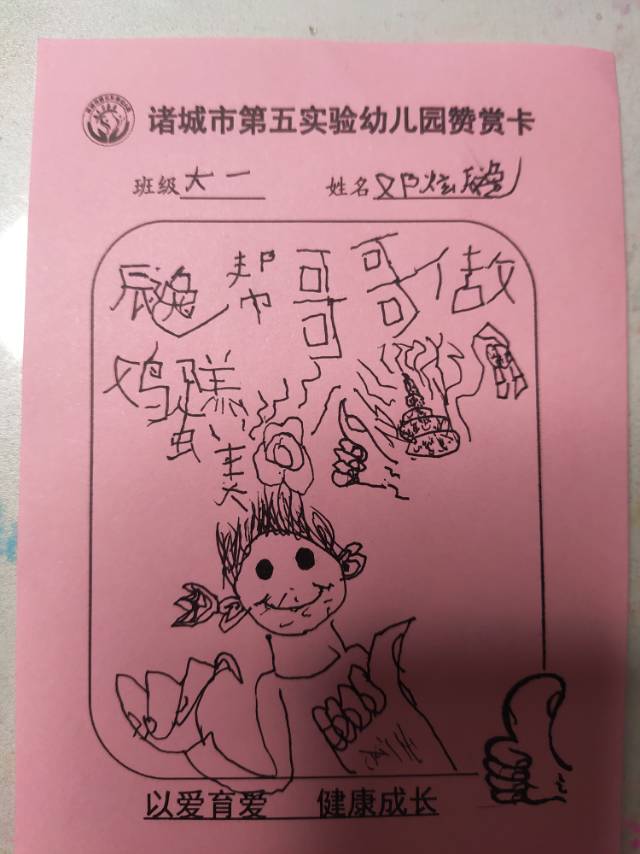 诸城市第五实验幼儿园赞赏卡
班级 大一 姓名 邓炫
帮哥哥做
鸡蛋羹
以爱育爱 健康成长